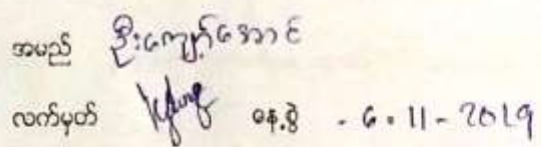 အမည် ဦးကျော်အောင်
လက်မှတ် နေ့စွဲ - 6 - 11 - 2019